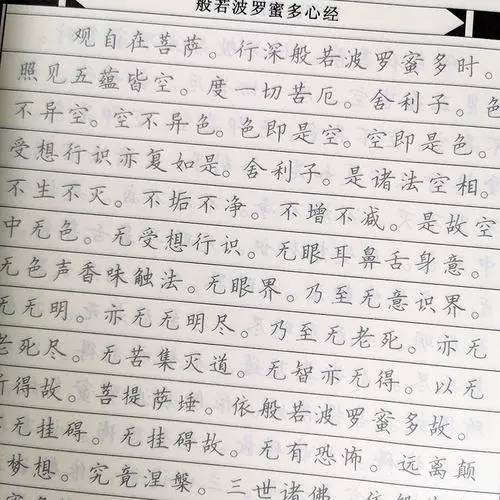 般若波罗蜜多心经
观自在菩萨。行深般若波罗蜜多时。
照见五蕴皆空。度一切苦厄。舍利子。色
不异空。空不异色。色即是空。空即是色。
受想行识亦复如是。舍利子。是诸法空相。
不生不灭。不垢不净。不增不减。是故空
中无色。无受想行识。无眼耳鼻舌身意。
无色声香味触法。无眼界。乃至无意识界。
无无明。亦无无明尽。乃至无老死。亦无
老死尽。无苦集灭道。无智亦无得。以无
所得故。菩提萨埵。依般若波罗蜜多故。
无挂碍。无挂碍故。无有恐怖。远离颠
梦想。究竟涅槃。三世诸佛。依般